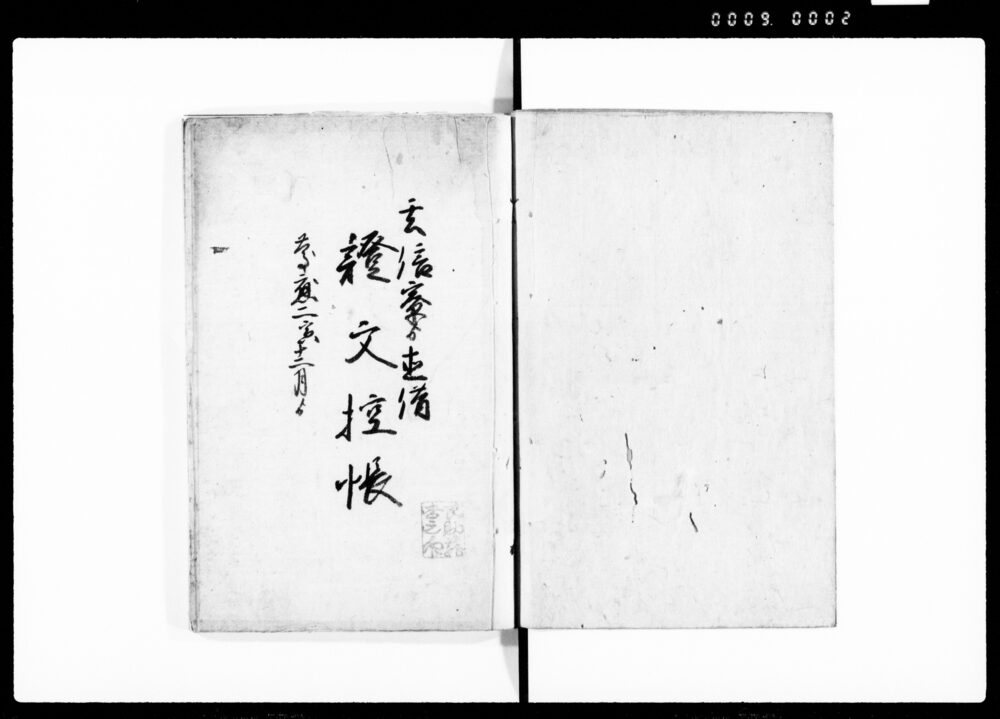 0009. 0002
信寮ゟ借
證文控帳
慶応二寅十二月ゟ